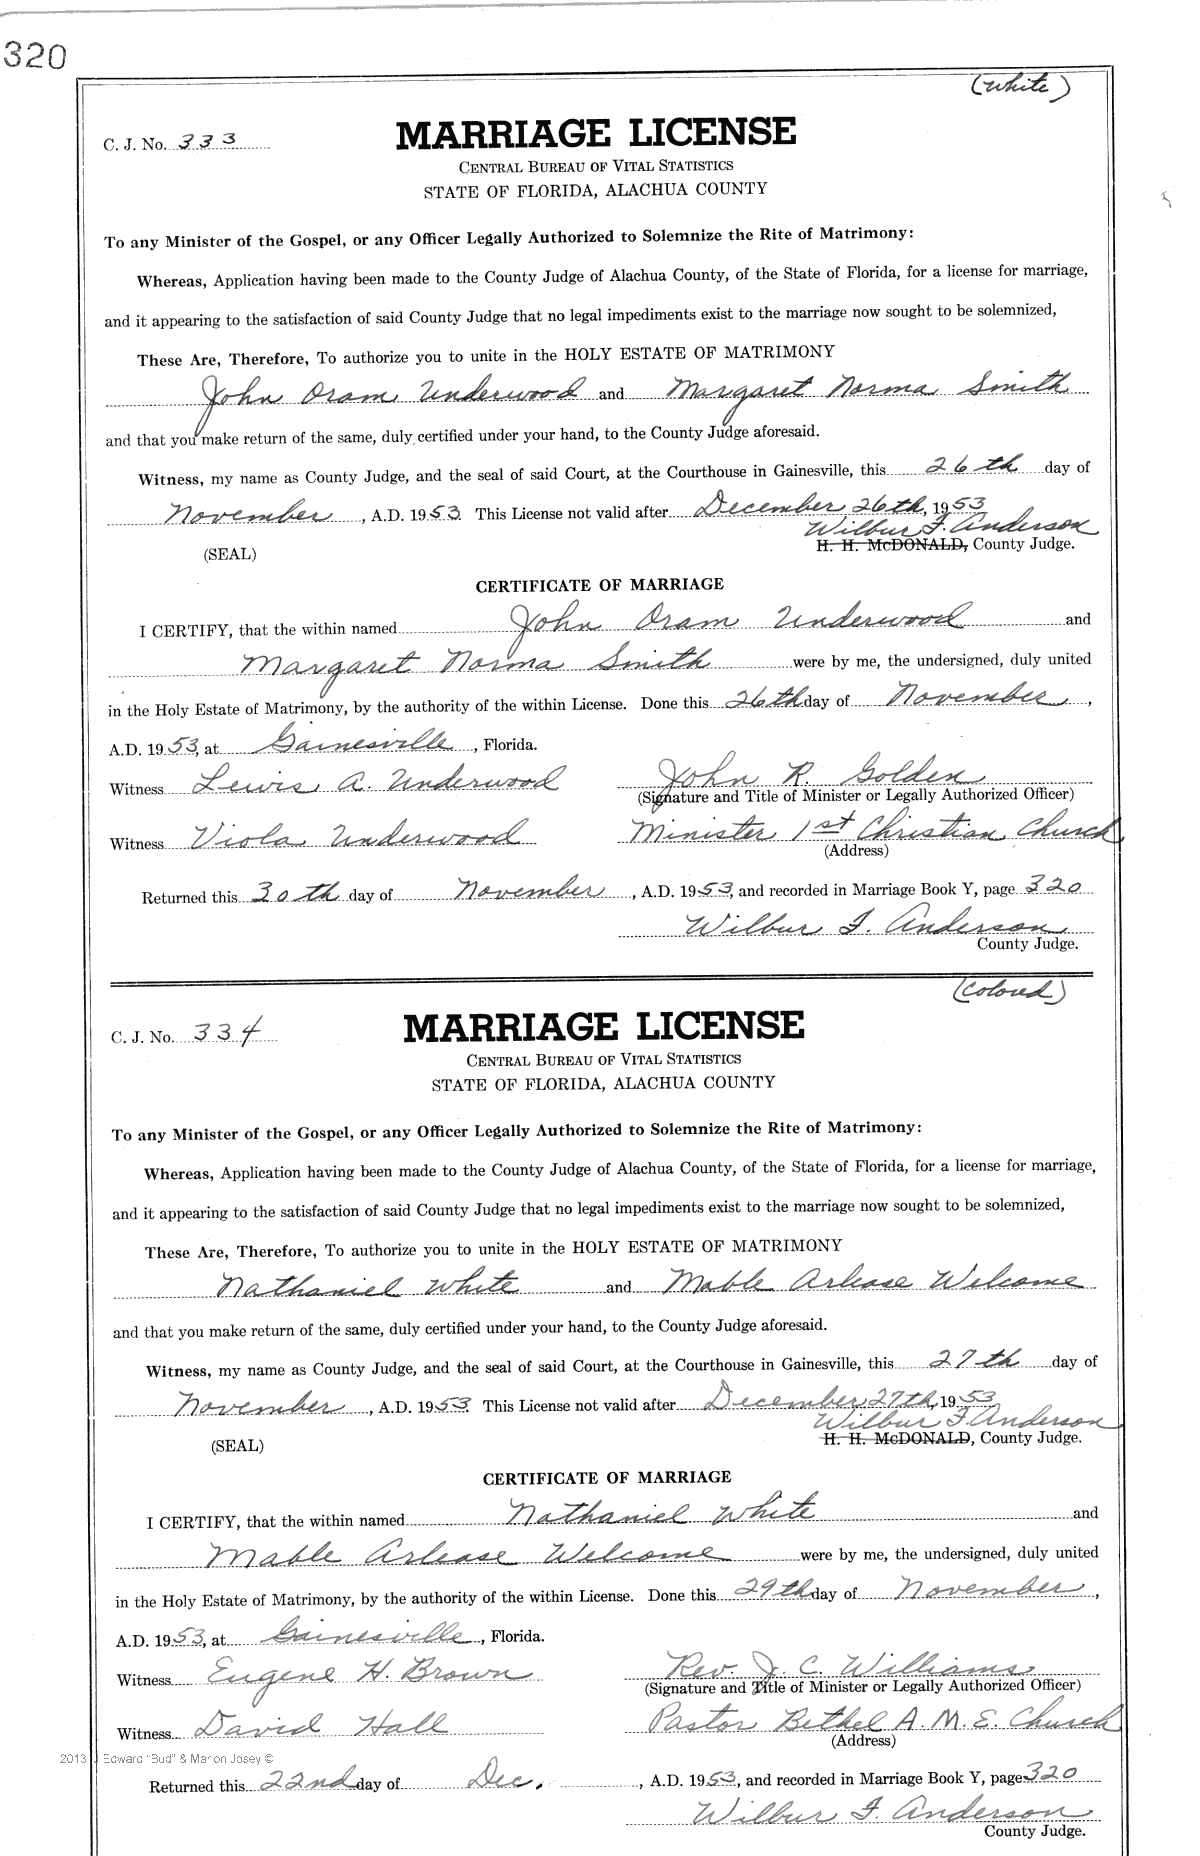 320
(white)
C. J. No. 333
MARRIAGE LICENSE
CENTRAL BUREAU OF VITAL STATISTICS
STATE OF FLORIDA, ALACHUA COUNTY
To any Minister of the Gospel, or any Officer Legally Authorized to Solemnize the Rite of Matrimony:
Whereas, Application having been made to the County Judge of Alachua County, of the State of Florida, for a license for marriage,
and it appearing to the satisfaction of said County Judge that no legal impediments exist to the marriage now sought to be solemnized,
These Are, Therefore, To authorize you to unite in the HOLY ESTATE OF MATRIMONY
John Oram Underwood and Margaret Norma Smith
and that you make return of the same, duly certified under your hand, to the County Judge aforesaid.
Witness, my name as County Judge, and the seal of said Court, at the Courthouse in Gainesville, this 26th day of
November, A.D. 1953. This License not valid after December 26th, 1953
Wilbur F. Anderson
(SEAL) H. H. McDONALD, County Judge.
CERTIFICATE OF MARRIAGE
I CERTIFY, that the within named John Oram Underwood and
Margaret Norma Smith were by me, the undersigned, duly united
in the Holy Estate of Matrimony, by the authority of the within License. Done this 26th day of November,
A.D. 1953, at Gainesville, Florida.
Witness Lewis A. Underwood John R. Golden
(Signature and Title of Minister or Legally Authorized Officer)
Witness Viola Underwood Minister 1st Christian Church
(Address)
Returned this 30th day of November, A.D. 1953, and recorded in Marriage Book Y, page 320
Wilbur F. Anderson
County Judge.
(Colored)
C. J. No. 334
MARRIAGE LICENSE
CENTRAL BUREAU OF VITAL STATISTICS
STATE OF FLORIDA, ALACHUA COUNTY
To any Minister of the Gospel, or any Officer Legally Authorized to Solemnize the Rite of Matrimony:
Whereas, Application having been made to the County Judge of Alachua County, of the State of Florida, for a license for marriage,
and it appearing to the satisfaction of said County Judge that no legal impediments exist to the marriage now sought to be solemnized,
These Are, Therefore, To authorize you to unite in the HOLY ESTATE OF MATRIMONY
Nathaniel White and Mable Arlease Welcome
and that you make return of the same, duly certified under your hand, to the County Judge aforesaid.
Witness, my name as County Judge, and the seal of said Court, at the Courthouse in Gainesville, this 27th day of
November, A.D. 1953. This License not valid after December 27th, 1953
Wilbur F. Anderson
(SEAL) H. H. McDONALD, County Judge.
CERTIFICATE OF MARRIAGE
I CERTIFY, that the within named Nathaniel White and
Mable Arlease Welcome were by me, the undersigned, duly united
in the Holy Estate of Matrimony, by the authority of the within License. Done this 29th day of November,
A.D. 1953, at Gainesville, Florida.
Witness Eugene H. Brown Rev. J. C. Williams
(Signature and Title of Minister or Legally Authorized Officer)
Witness David Hall Pastor Bethel A. M. E. Church
(Address)
2013 J Edward "Bud" & Marion Josey ©
Returned this 22nd day of Dec., A.D. 1953, and recorded in Marriage Book Y, page 320
Wilbur F. Anderson
County Judge.